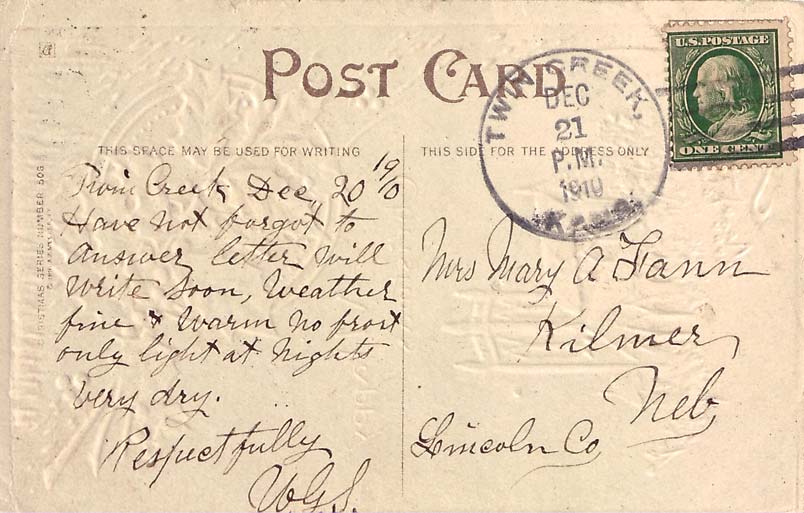 POST CARD
U.S. POSTAGE
ONE CENT
TWIN CREEK,
DEC
21
P.M.
1910
KANS.
THIS SPACE MAY BE USED FOR WRITING
THIS SIDE FOR THE ADDRESS ONLY
CHRISTMAS SERIES NUMBER 506
Twin Creek Dec, 20 1910
Have not forgot to
Answer letter Will
write Soon, Weather
fine & Warm no frost
only light at Nights
very dry.
Respectfully
W.G.S.
Mrs Mary A Fann
Kilmer,
Neb
Lincoln Co